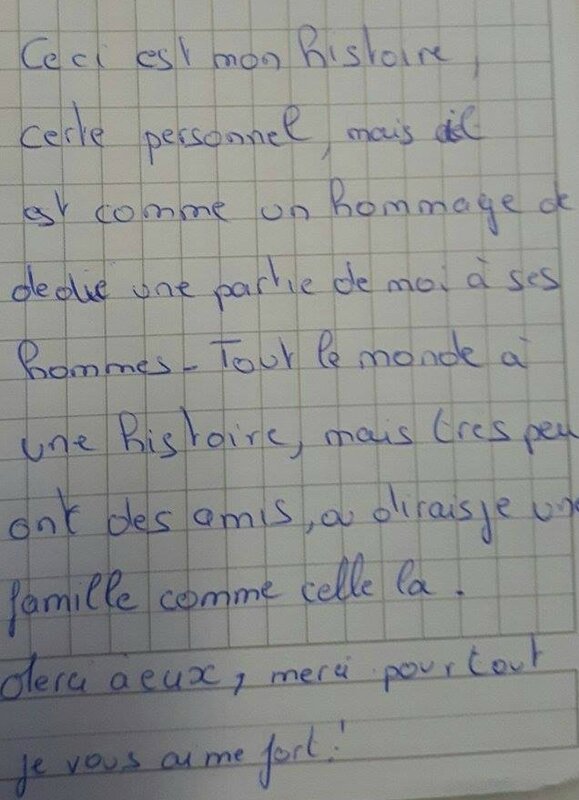 Ceci est mon histoire,
certe personnel, mais il
est comme un hommage de
dedié une partie de moi à ses
hommes - Tout le monde à
une histoire, mais tres peu
ont des amis, ou dirais je une
famille comme celle la.
Merci a eux, merci pour tout
je vous aime fort!